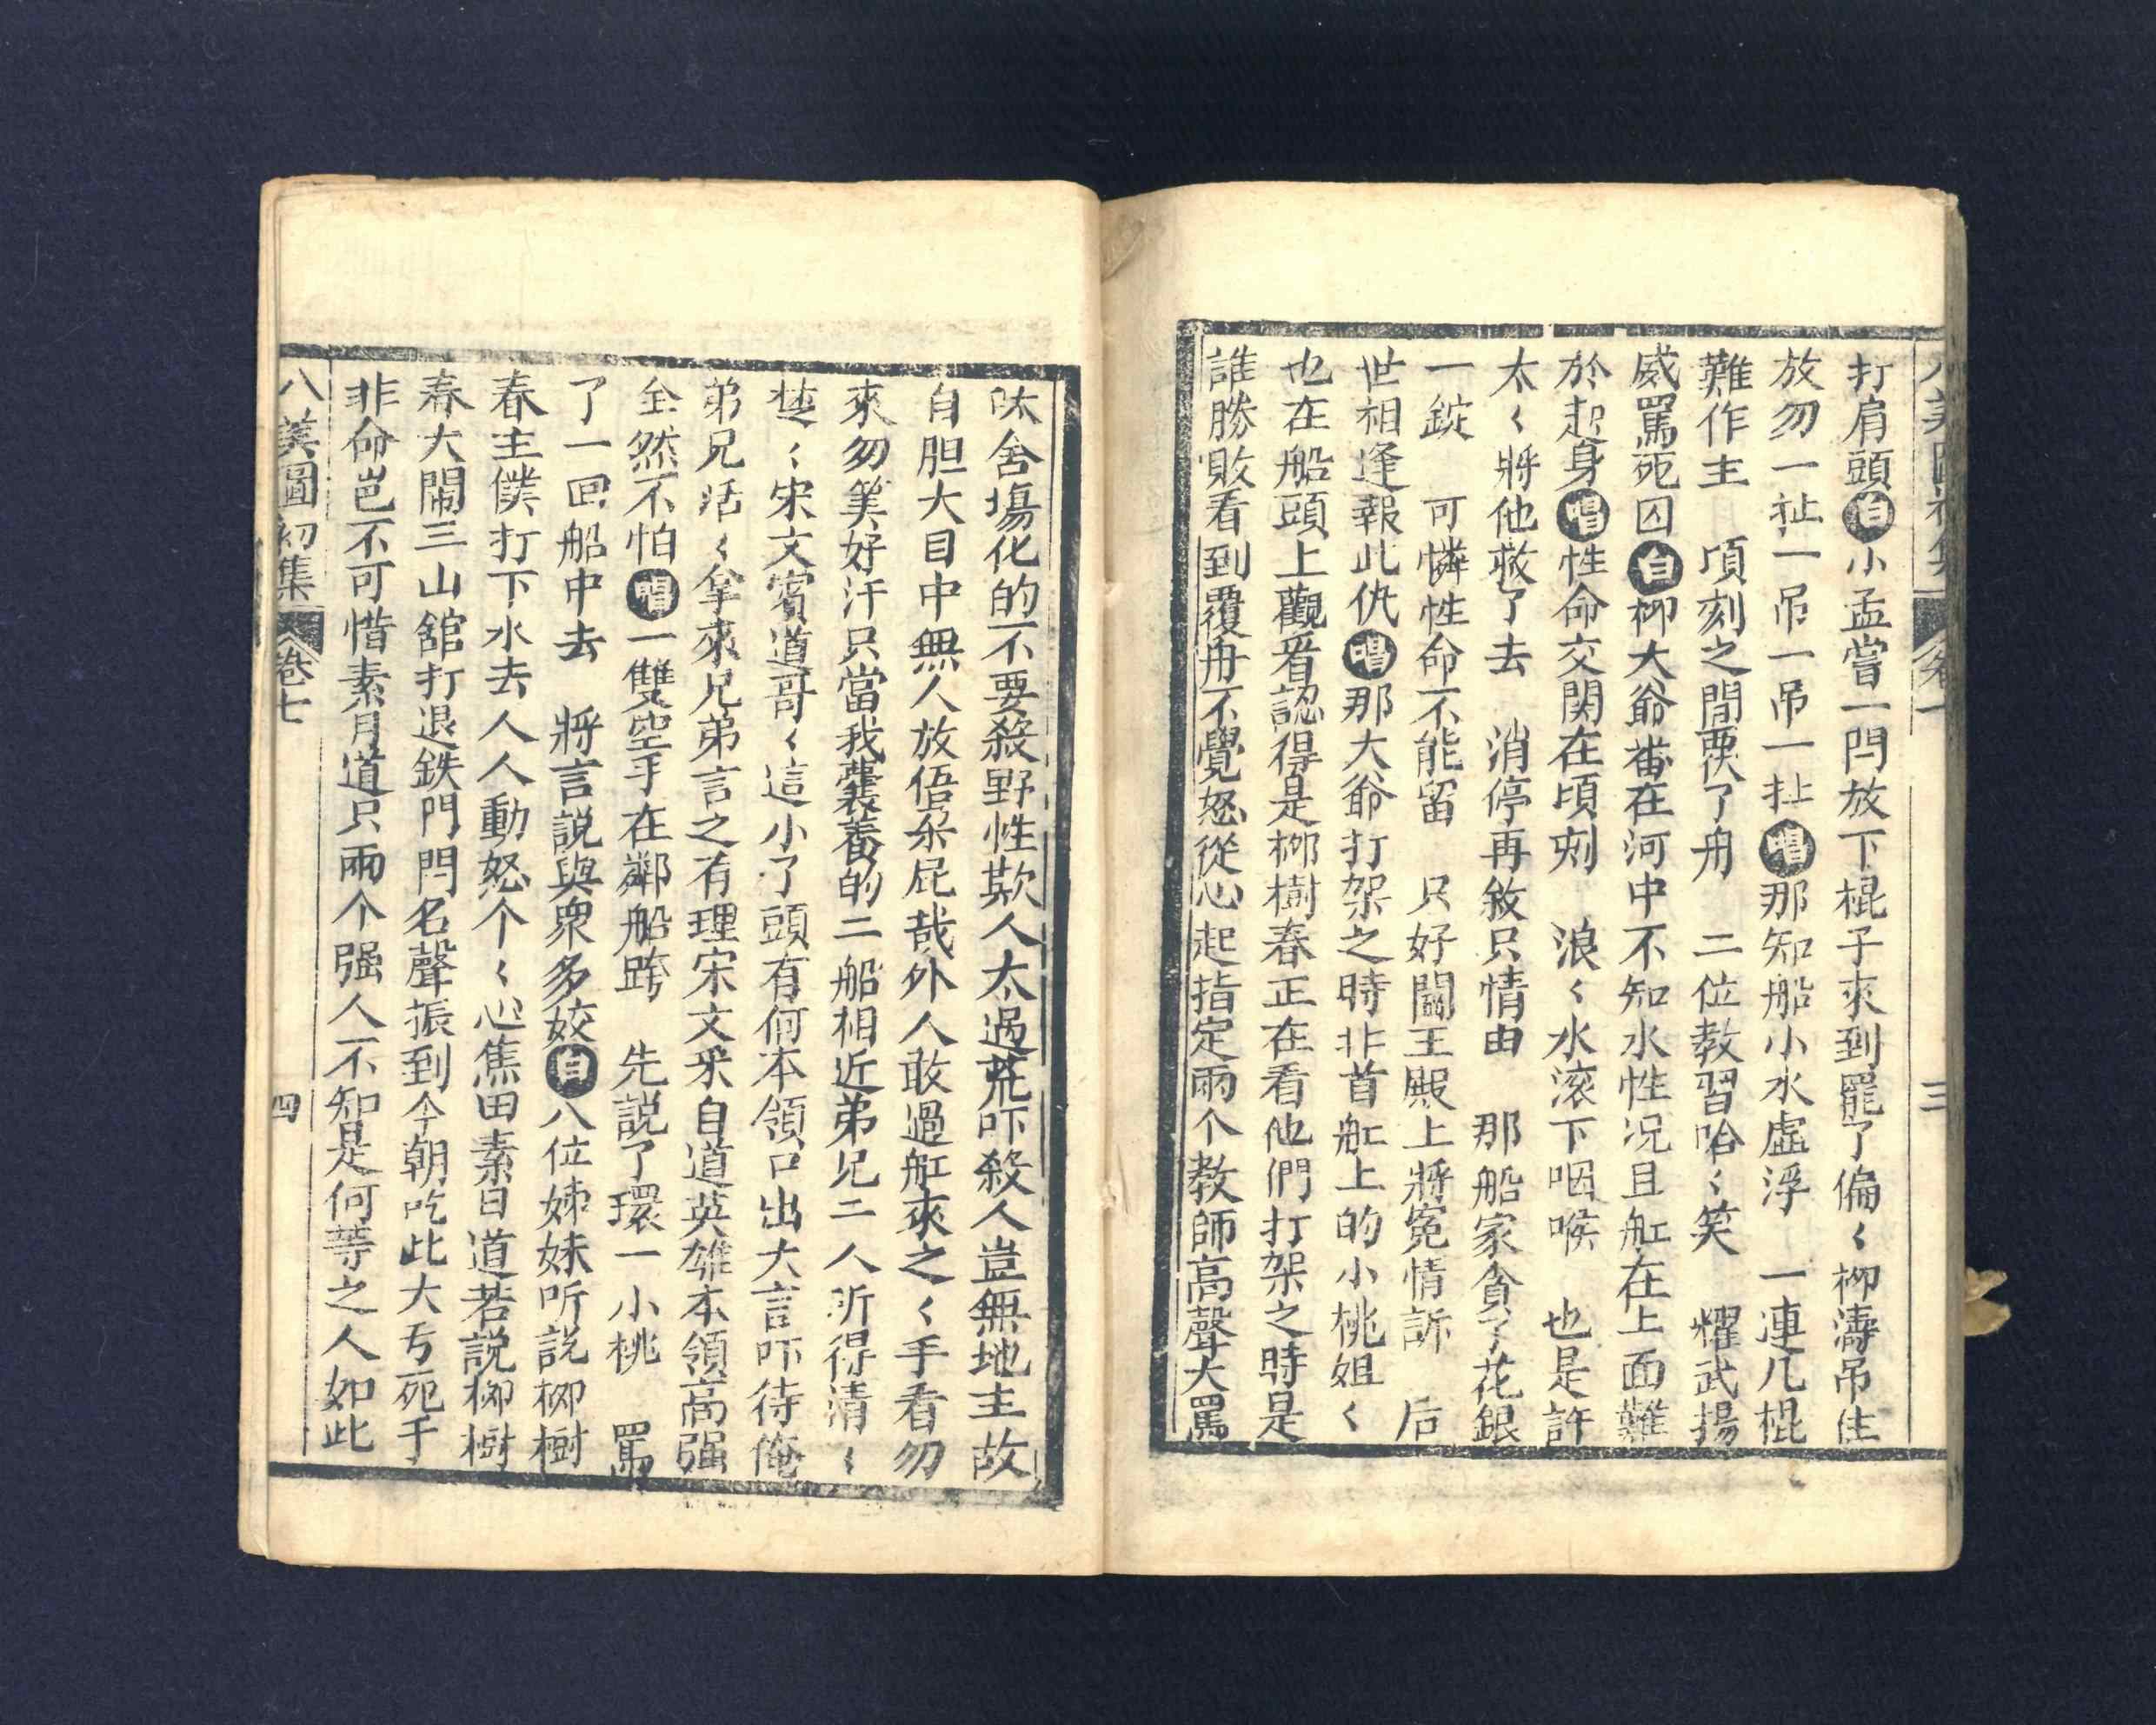 打肩頭白小孟嘗一閃放下棍子來到罷了偏〻柳濤吊住
放勿一扯一吊一吊一扯唱那知船小水虛浮 一連几棍
難作主 頃刻之間覆了舟 二位教習哈〻笑 耀武揚
威罵死囚白柳大爺番在河中不知水性况且舡在上面難
於起身唱性命交関在頃刻 浪〻水滚下咽喉 也是許
太〻將他救了去 消停再敘只情由 那船家貪了花銀
一錠 可憐性命不能留 只好閻王殿上將冤情訴 后
世相逢報此仇唱那大爺打架之時非首舡上的小桃姐〻
也在船頭上觀看認得是柳樹春正在看他們打架之時是
誰勝敗看到覆舟不覺怒從心起指定兩个教師高聲大罵
呔舍塲化的不要殺野性欺人太過荒吓殺人豈無地主故
自胆大目中無人放俉朵屁哉外人敢過舡來之〻手看勿
來勿算好汗只當我襲養的二船相近弟兄二人听得清〻
楚〻宋文賓道哥〻這小了頭有何本領口出大言吓待俺
弟兄活〻拿來兄弟言之有理宋文釆自道英雄本領高强
全然不怕唱一雙空手在鄰船跨 先説了環一小桃 罵
了一回船中去 將言説與衆多姣白八位姊妹听説柳樹
春主僕打下水去人人動怒个〻心焦田素日道若説柳樹
春大鬧三山舘打退鉄門閂名聲振到今朝吃此大亏死手
非命岂不可惜素月道只兩个强人不知是何等之人如此
八美圖初集 卷七 四